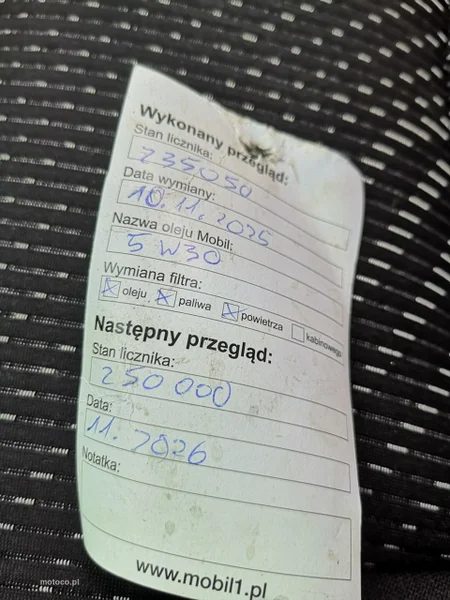 Wykonany przegląd:
Stan licznika:
235050
Data wymiany:
10.11.2025
Nazwa oleju Mobil:
5W30
Wymiana filtra:
oleju paliwa powietrza kabinowego
Następny przegląd:
Stan licznika:
250 000
Data:
11.2026
Notatka:
www.mobil1.pl
motoco.pl